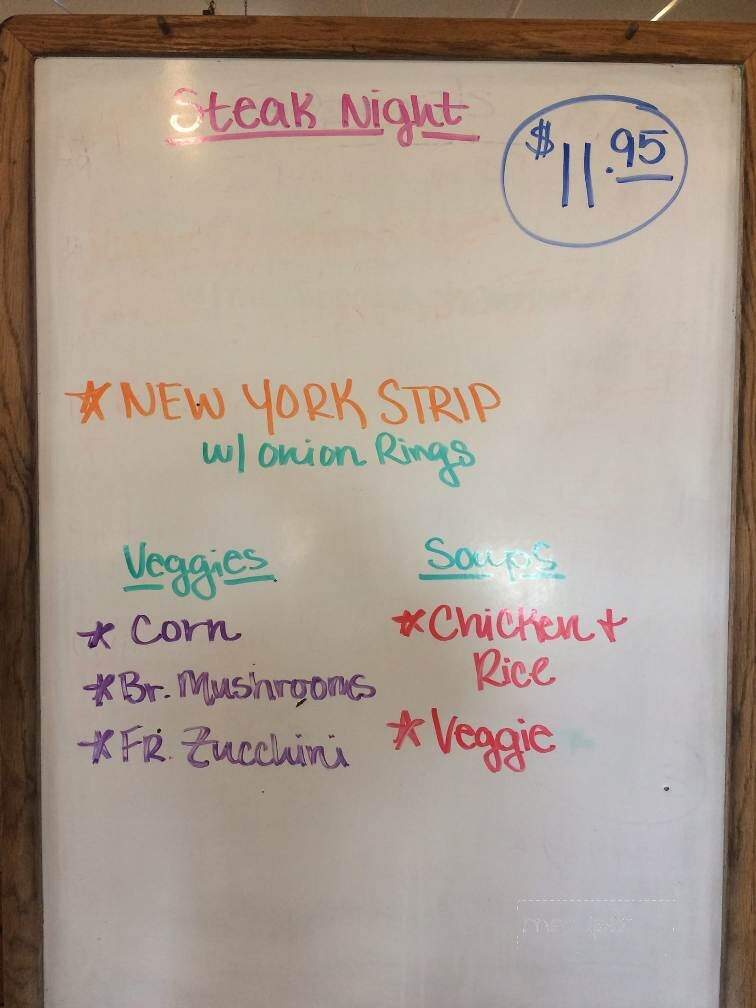 Steak Night
$11.95
* NEW YORK STRIP
w/ onion Rings
Veggies
* Corn
* Br. Mushrooms
* FR. Zucchini
Soups
* Chicken +
Rice
* Veggie